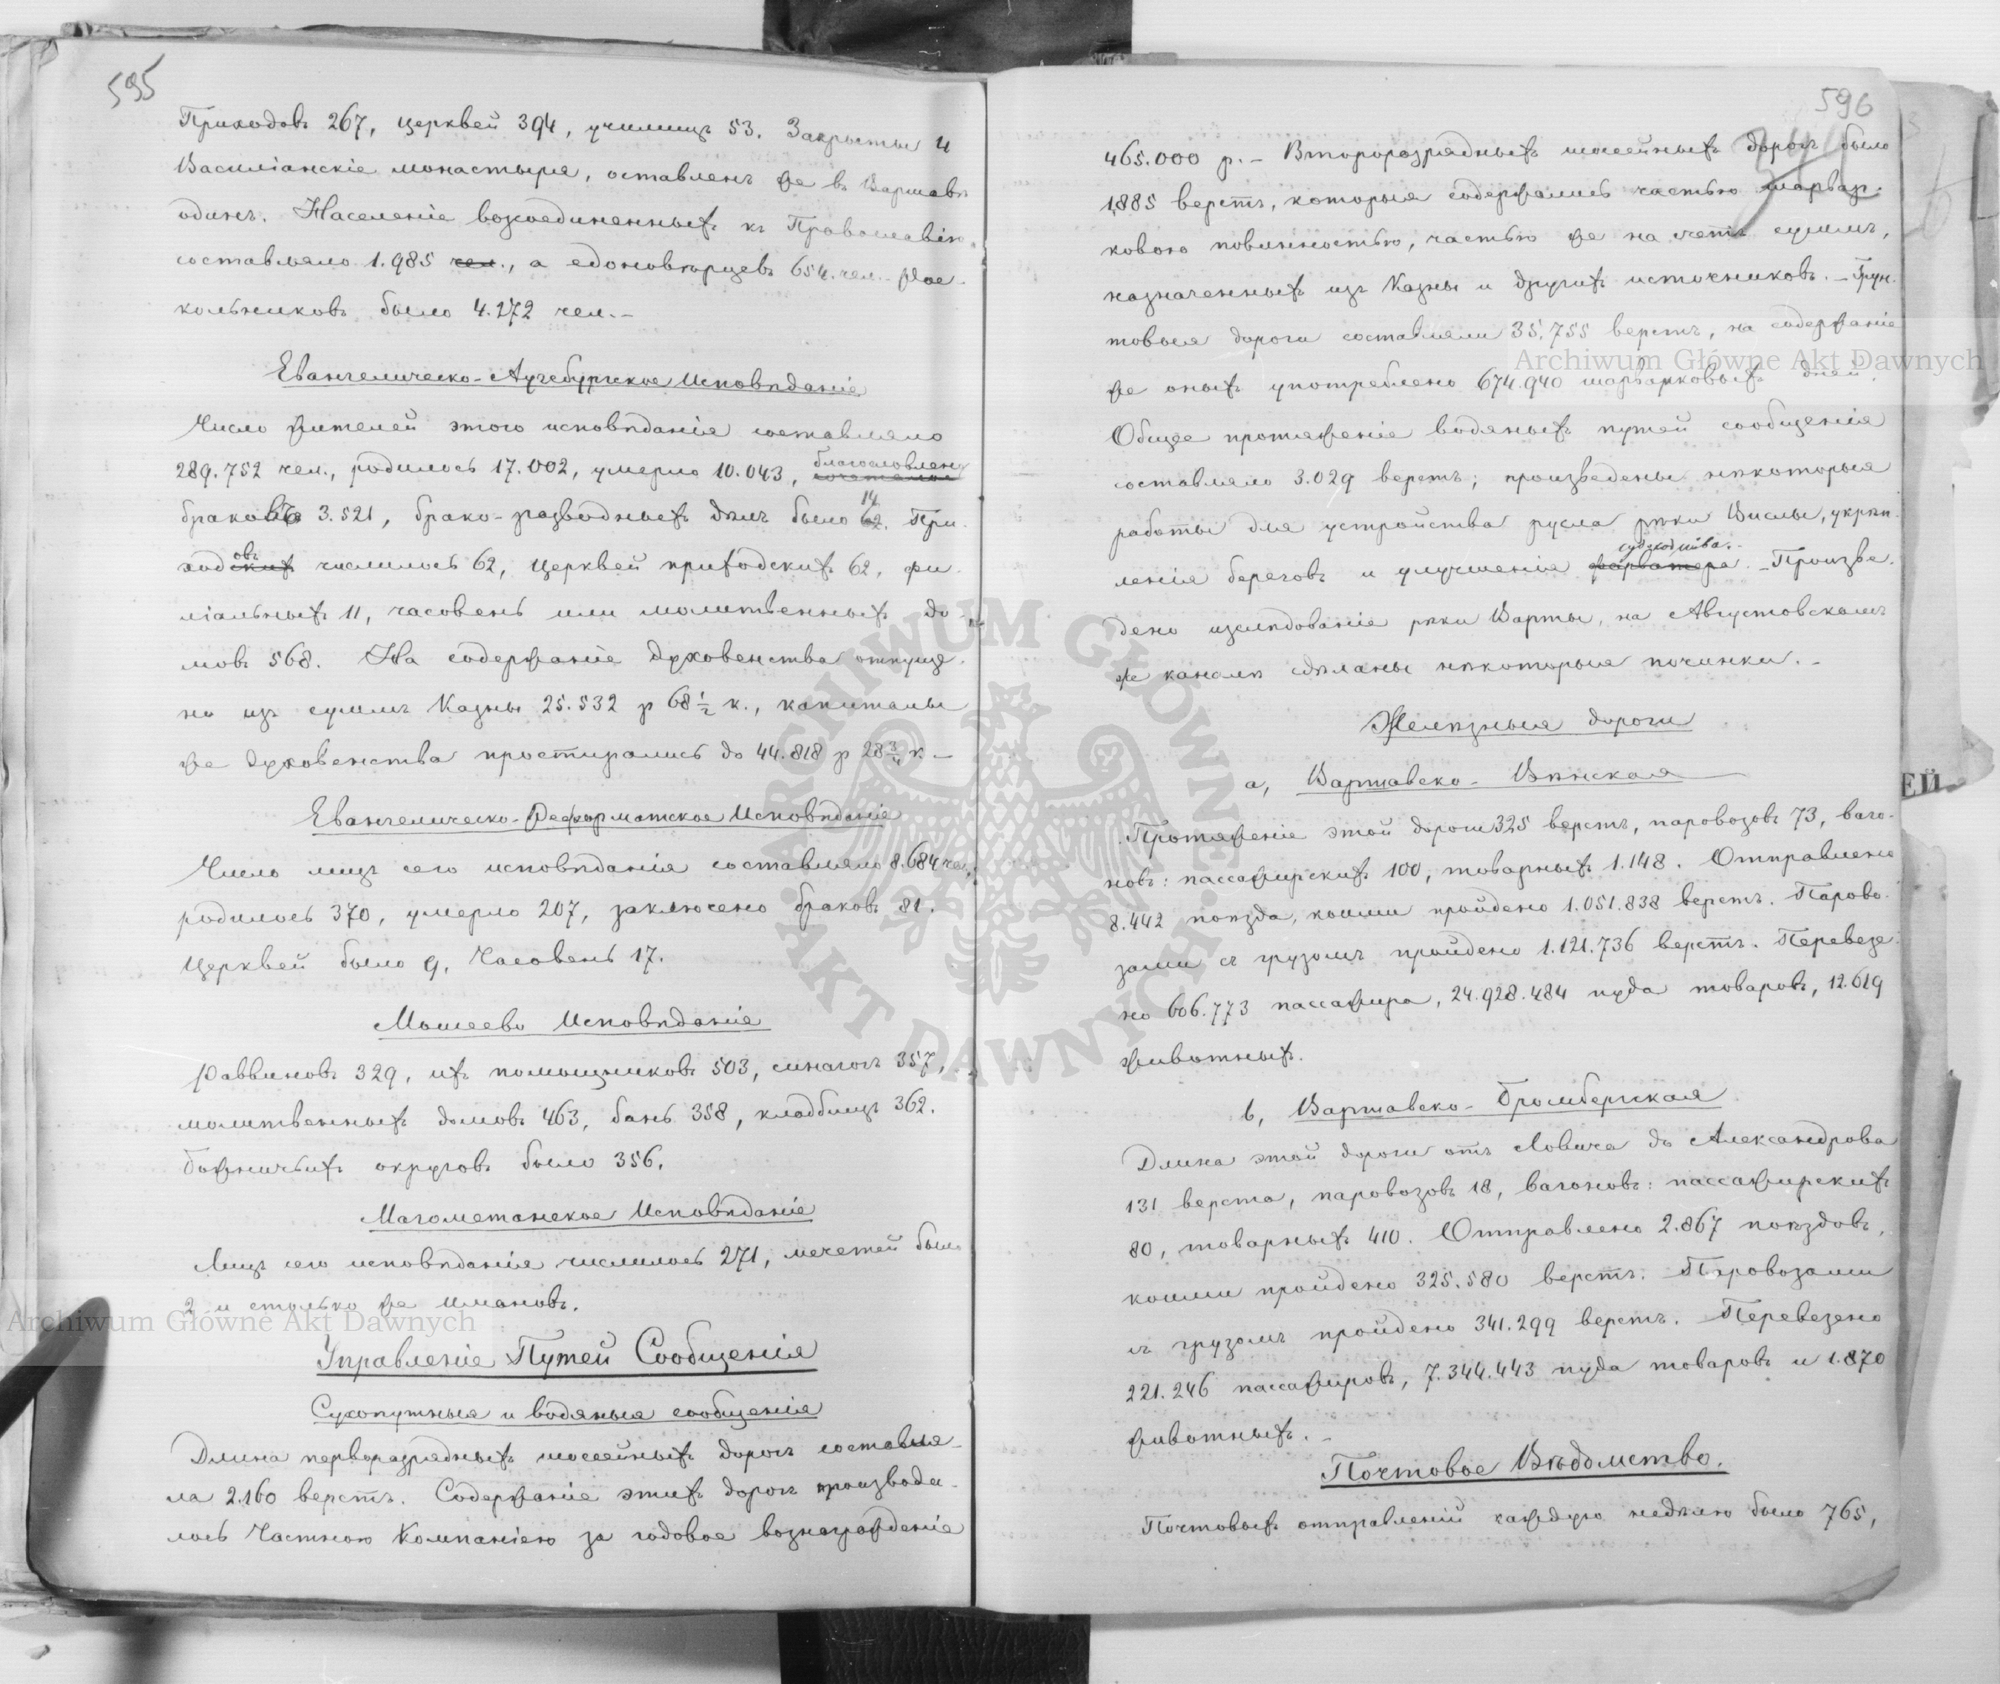 595
Приходовъ 267, церквей 394, училищъ 53. Закрыты 4
Василіанскіе монастыря, оставленъ же въ Варшавѣ
одинъ. Населеніе возсоединенныхъ къ Православію
составляло 1.985 чел., а едоновѣрцевъ 654 чел. – Рас-
кольниковъ было 4.272 чел. –
Евангелическо-Аугсбургское Исповѣданіе
Число жителей этого исповѣданія составляло
289.752 чел., родилось 17.002, умерло 10.043, благословлено
браковъ 3.521, брако-разводныхъ дѣлъ было 14. При-
ходовъ числилось 62, церквей приходскихъ 62, фи-
ліальныхъ 11, часовень или молитвенныхъ до-
мовъ 568. На содержаніе духовенства отпуще-
но изъ суммъ Казны 25.532 р 68 1/2 к., капиталы
же духовенства простирались до 44.818 р 28 3/4 к. –
Евангелическо-Реформатское Исповѣданіе
Число лицъ сего исповѣданія составляло 8.684 чел,
родилось 370, умерло 207, заключено браковъ 81.
Церквей было 9, Часовень 17.
Моисеево Исповѣданіе
Раввиновъ 329, ихъ помощниковъ 503, синагогъ 357,
молитвенныхъ домовъ 463, бань 358, кладбищъ 362.
Божничьихъ округовъ было 356.
Магометанское Исповѣданіе
Лицъ сего исповѣданія числилось 271, мечетей было
2 и столько же имановъ.
Управленіе Путей Сообщенія
Сухопутныя и водяныя сообщенія
Длина перворазрядныхъ шоссейныхъ дорогъ составля-
ла 2.160 верстъ. Содержаніе этихъ дорогъ производи-
лось Частною Компаніею за годовое вознагражденіе
596
465.000 р. – Второразрядныхъ шоссейныхъ дорогъ было
1,885 верстъ, которыя содержались частью шарвар-
ковою повинностью, частью же на счетъ суммъ,
назначенныхъ изъ Казны и другихъ источниковъ. – Грун-
товыя дороги составляли 35.755 верстъ, на содержаніе
же оныхъ употреблено 674.940 шарварковыхъ дней.
Общее протяженіе водяныхъ путей сообщенія
составляло 3.029 верстъ; произведены нѣкоторыя
работы для устройства русла рѣки Вислы, укрѣп-
ленія береговъ и улучшенія судоходства. – Произве-
дено изслѣдованіе рѣки Варты, на Августовскомъ
же каналѣ сдѣланы нѣкоторыя починки. –
Желѣзныя дороги
а, Варшавско-Вѣнская
Протяженіе этой дороги 325 верстъ, паровозовъ 73, ваго-
новъ: пассажирскихъ 100, товарныхъ 1.148. Отправлено
8.442 поѣзда, коими пройдено 1.051.838 верстъ. Парово-
зами съ грузомъ пройдено 1.121.736 верстъ. Перевезе-
но 606.773 пассажира, 24.928.484 пуда товаровъ, 12.619
животныхъ.
b, Варшавско-Бромбергская
Длина этой дороги отъ Ловича до Александрова
131 верста, паровозовъ 18, вагоновъ: пассажирскихъ
80, товарныхъ 410. Отправлено 2.867 поѣздовъ,
коими пройдено 325.580 верстъ. Паровозами
съ грузомъ пройдено 341.299 верстъ. Перевезено
221.246 пассажировъ, 7.344.443 пуда товаровъ и 1.870
животныхъ. –
Почтовое Вѣдомство.
Почтовыхъ отправленій каждую недѣлю было 765,
ЕЙ
Archiwum Główne Akt Dawnych
Archiwum Główne Akt Dawnych
ARCHIWUM GŁÓWNE · AKT DAWNYCH ·